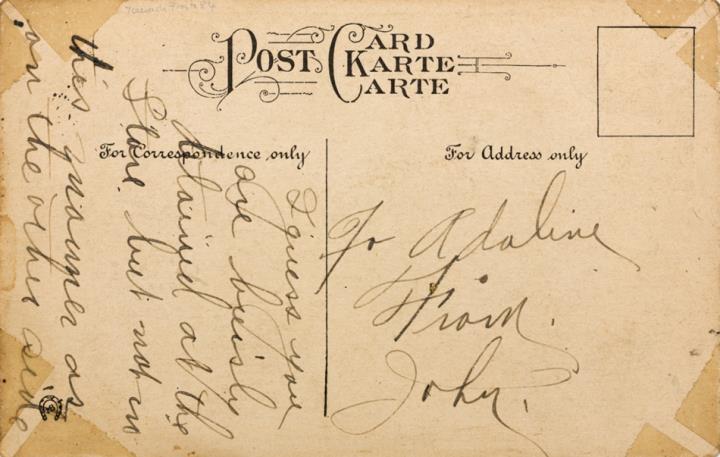 POST CARD
KARTE
CARTE
For Correspondence only
For Address only
I guess you
are buisly
detained at the
Store but not in
this manner as
on the other side
To Adaline
From.
John.